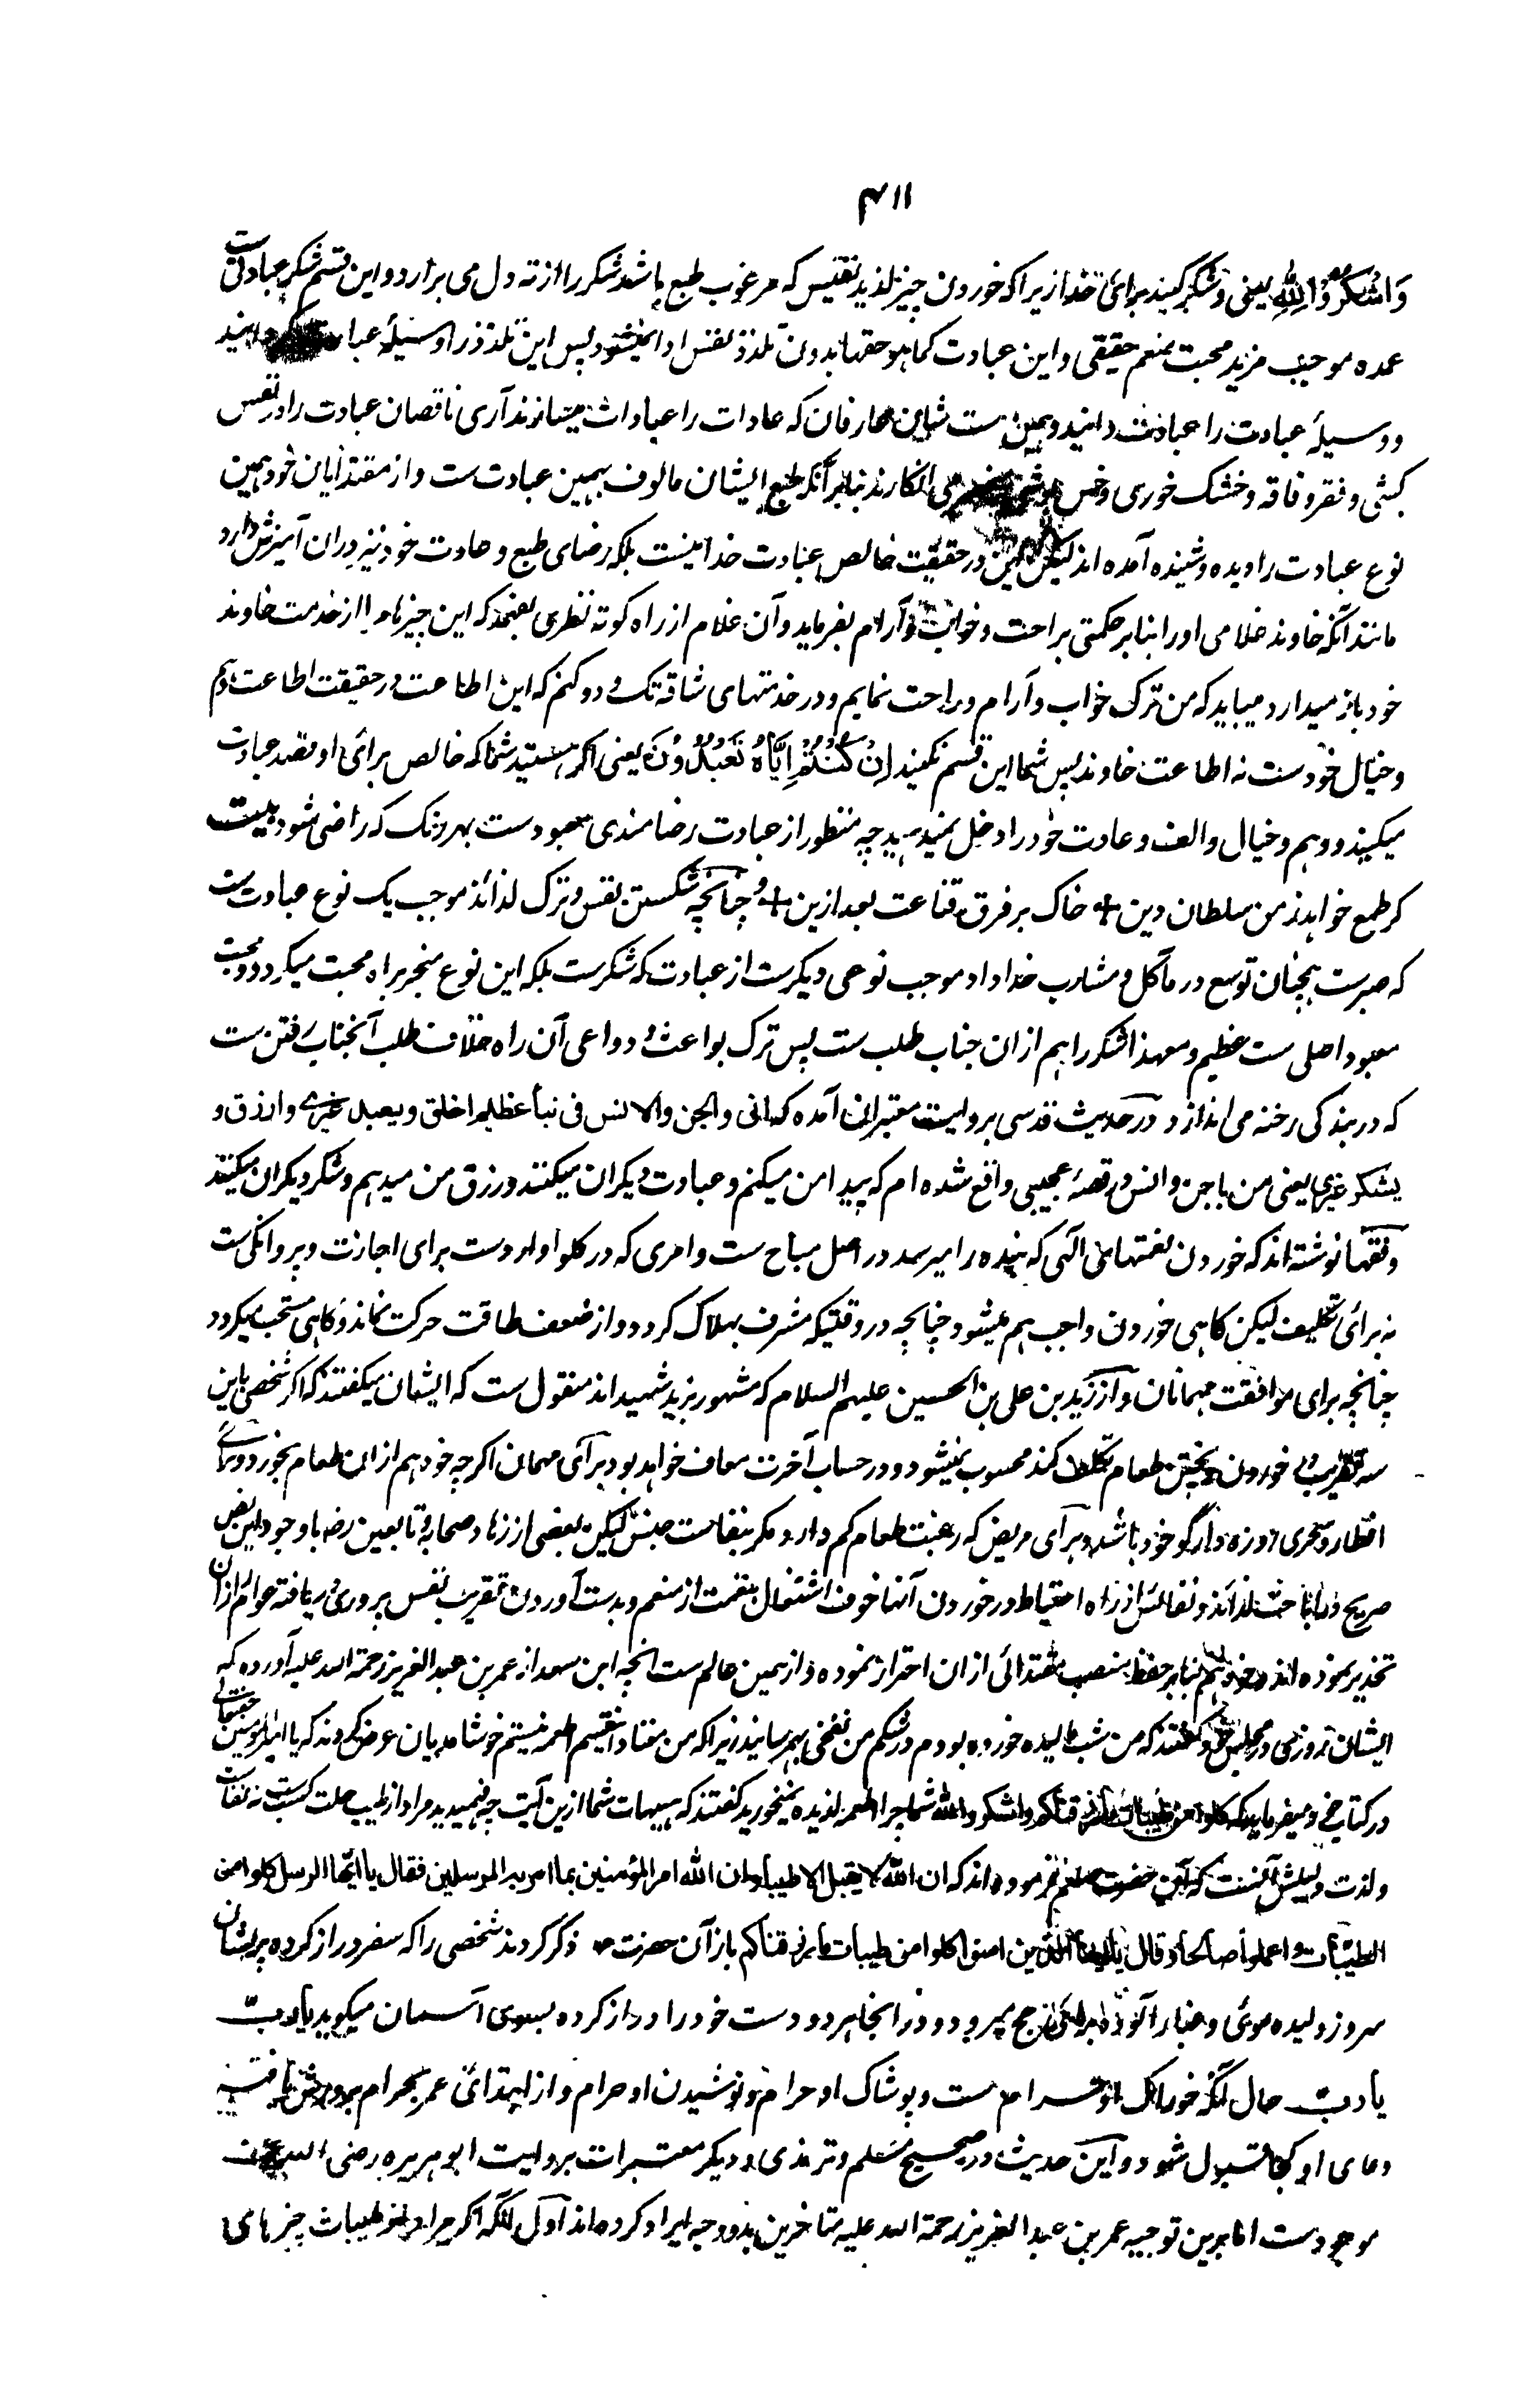 ۴۱۱
وَاشْكُرُوْا لِلّٰهِ یعنی و شکر کنید برای خدا زیرا که خوردن چیز لذیذ نفیس که مرغوب طبع باشد شکر را از ته دل می برارد و این قسم شکر عبادتی ست
عمده موجب مزید محبت منعم حقیقی و این عبادت کما هو حقها بدون تلذذ نفس ادا نمیشود پس این تلذذ را وسیلهٔ عبادت گردانید
و وسیلهٔ عبادت را عبادت دانید و همین ست شان عارفان که عادات را عبادات میسازند آری ناقصان عبادت را در نفس
کشی و فقر و فاقه و خشک خوری و خس پوشی می انگارند بنابر آنکه طبع ایشان مالوف بهمین عبادت ست و از مقتدایان خود همین
نوع عبادت را دیده و شنیده آمده اند لیکن این در حقیقت خالص عبادت خدا نیست بلکه رضای طبع و عادت خود نیز دران آمیزش دارد
مانند آنکه خاوند غلامی او را بنابر حکمتی براحت و خواب و آرام بفرماید و آن غلام از راه کوته نظری بفهمد که این چیزها مرا از خدمت خاوند
خود باز میدارد میباید که من ترک خواب و آرام و راحت نمایم و در خدمتهای شاقه تک و دو کنم که این اطاعت در حقیقت اطاعت وهم
و خیال خودست نه اطاعت خاوند پس شما این قسم نکنید اِنْ كُنْتُمْ اِيَّاهُ تَعْبُدُوْنَ یعنی اگر هستید شما که خالص برای او قصد عبادت
میکنید و وهم و خیال و الف و عادت خود را دخل نمیدهید چه منظور از عبادت رضامندی معبودست بهر رنگ که راضی شود بیت
گر طمع خواهد ز من سلطان دین + خاک بر فرق قناعت بعد ازین + و چنانچه شکستن نفس و ترک لذائذ موجب یک نوع عبادت ست
که صبرست همچنان توسع در مآکل و مشارب خداداد موجب نوعی دیگرست از عبادت که شکرست بلکه این نوع منجر براه محبت میگردد و محبت
معبود اصلی ست عظیم و معهذا شکر را هم ازان جناب طلب ست پس ترک بواعث و دواعی آن راه خلاف طلب آنجناب رفتن ست
که در بندگی رخنه می اندازد در حدیث قدسی بروایت معتبران آمده که انی والجن والانس فی نبأ عظیم اخلق ویعبد غیری وارزق و
یشکر غیری یعنی من با جن و انس در قصهٔ عجیبی واقع شده ام که پیدا من میکنم و عبادت دیگران میکنند و رزق من میدهم و شکر دیگران میکنند
و فقها نوشته اند که خوردن نعمتهای الهی که بنده را میرسد در اصل مباح ست و امری که در کلوا واردست برای اجازت و پروانگی ست
نه برای تکلیف لیکن گاهی خوردن واجب هم میشود چنانچه در وقتیکه مشرف بهلاک گردد و از ضعف طاقت حرکت نماند و گاهی مستحب میگردد
چنانچه برای موافقت مهمانان و از زید بن علی بن الحسین علیهم السلام که مشهور بزید شهیداند منقول ست که ایشان میگفتند که اگر شخصی باین
سه تقریب در خوردن و پختن طعام تکلف کند محسوب نمیشود و در حساب آخرت معاف خواهد بود برای مهمان اگرچه خود هم ازان طعام بخورد و برای
افطار و سحری روزه دار گو خود باشد و برای مریض که رغبت طعام کم دارد مگر بنفاست جنس لیکن بعضی از زهاد صحابه و تابعین رض با وجود این نص
صریح در اباحت لذائذ و نفائس از راه احتیاط در خوردن آنها خوف اشتغال بنعمت از منعم و بدست آوردن تقریب نفس پروری دریافته عوام را ازان
تحذیر نموده اند و خود هم بنابر حفظ منصب مقتدائی ازان احتراز نموده و از همین عالم ست انچه ابن سعد از عمر بن عبد العزیز رحمة الله علیه آورده که
ایشان روزی در مجلس خود گفتند که من شب مالیده خورده بودم در شکم من نفخی بهم رسانید زیرا که من معتاد این قسم اطعمه نیستم خوشامدیان عرض کردند که یا امیر المؤمنین حقتعالی
در کتاب خود میفرماید که کلوا من طیبات ما رزقناکم واشکروا لله شما چرا اطعمه لذیذه نمیخورید گفتند که هیهات شما ازین آیت چه فهمیدید مراد از طیب حلت کسب ست نه نفاست
و لذت و دلیلش آنست که آن حضرت صلعم فرموده اند که ان الله لا یقبل الا طیبا وان الله امر المؤمنین بما امر به المرسلین فقال یا ایها الرسل کلوا من
الطیبات واعملوا صالحا وقال یا ایها الذین امنوا کلوا من طیبات ما رزقناکم باز آن حضرت ص ذکر کردند شخصی را که سفر دراز کرده پریشان
سر و ژولیده موئی و غبار آلوده برای حج میرود و در انجا هر دو دست خود را دراز کرده بسوی آسمان میگوید یا رب
یا رب حال آنکه خوراک او حرام ست و پوشاک او حرام و نوشیدن او حرام و از ابتدائی عمر بحرام پرورش یافته
دعای او کجا قبول شود و این حدیث در صحیح مسلم و ترمذی و دیگر معتبرات بروایت ابو هریره رضی الله عنه
موجودست اما برین توجیه عمر بن عبد العزیز رحمة الله علیه متاخرین بدو وجه ایراد کرده اند اول آنکه اگر مراد از طیبات چیزهای